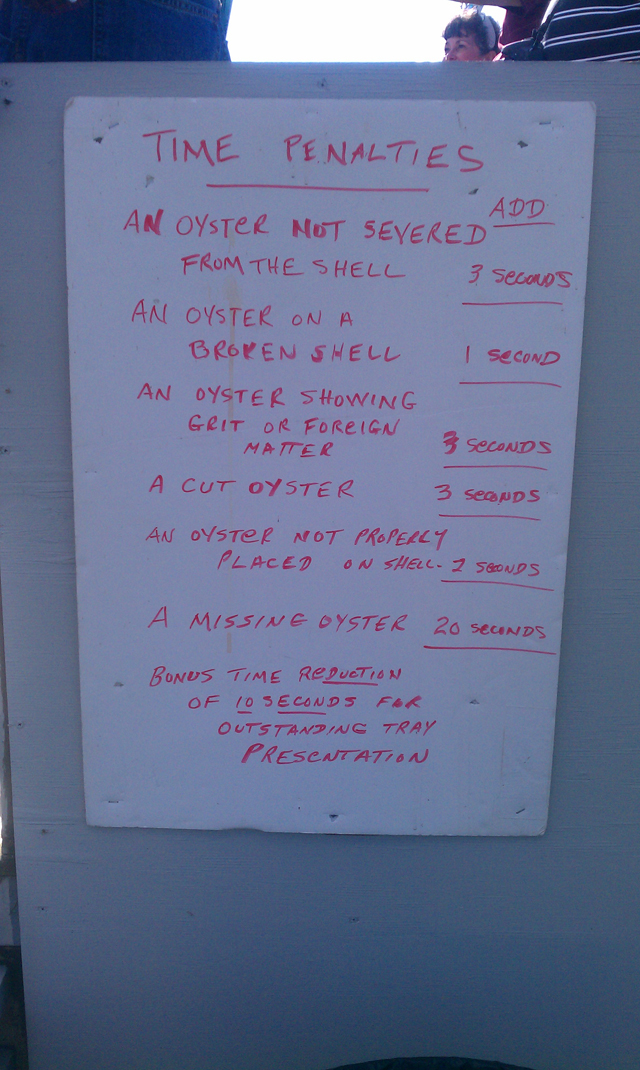 TIME PENALTIES
ADD
AN OYSTER NOT SEVERED
FROM THE SHELL 3 SECONDS
AN OYSTER ON A
BROKEN SHELL 1 SECOND
AN OYSTER SHOWING
GRIT OR FOREIGN
MATTER 3 SECONDS
A CUT OYSTER 3 SECONDS
AN OYSTER NOT PROPERLY
PLACED ON SHELL - 2 SECONDS
A MISSING OYSTER 20 SECONDS
BONUS TIME REDUCTION
OF 10 SECONDS FOR
OUTSTANDING TRAY
PRESENTATION